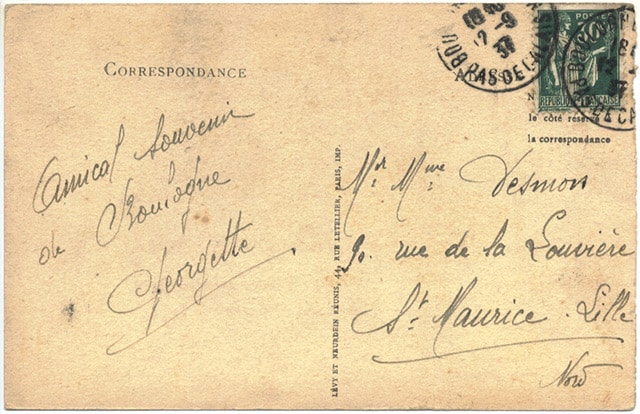 CORRESPONDANCE
Amical souvenir
de Boulogne
Georgette
LÉVY ET NEURDEIN RÉUNIS, 44, RUE LETELLIER, PARIS, IMP.
12-9
37
PAS DE CALAIS
POSTES
RÉPUBLIQUE FRANÇAISE
le côté réservé
la correspondance
Mr Mme Desmon
90 rue de la Louvière
St Maurice. Lille
Nord